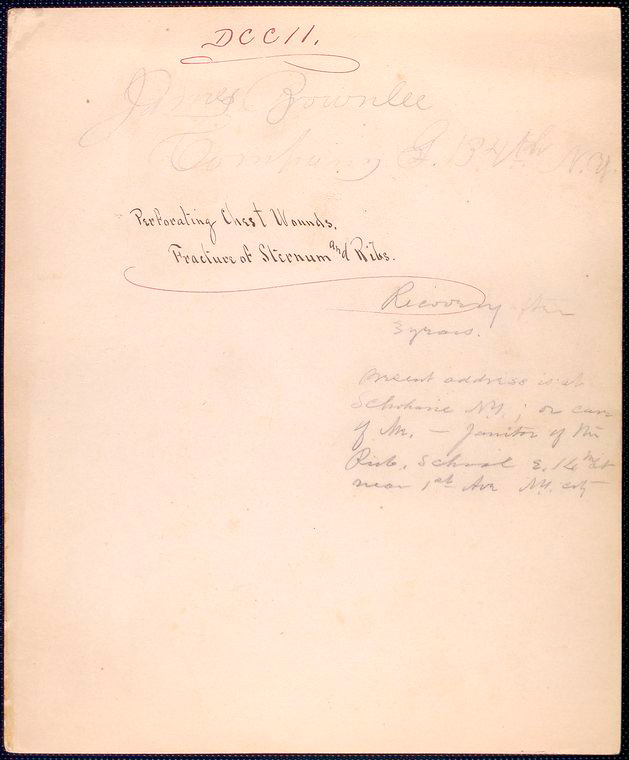 DCCII.
James Brownlee
Company G. 134th N.Y.
Perforating Chest Wounds.
Fracture of Sternum and Ribs.
Recovery after
3 years.
Present address is at
Schoharie NY.; or care
of Mr. — Janitor of the
Pub. School E. 14th St
near 1st Ave N.Y. city